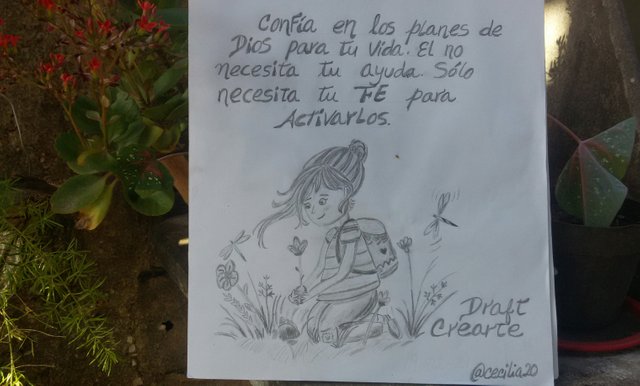 Confía en los planes de
Dios para tu vida. El no
necesita tu ayuda. Sólo
necesita tu FE para
Activarlos.
Draft
Crearte
@cecilia20